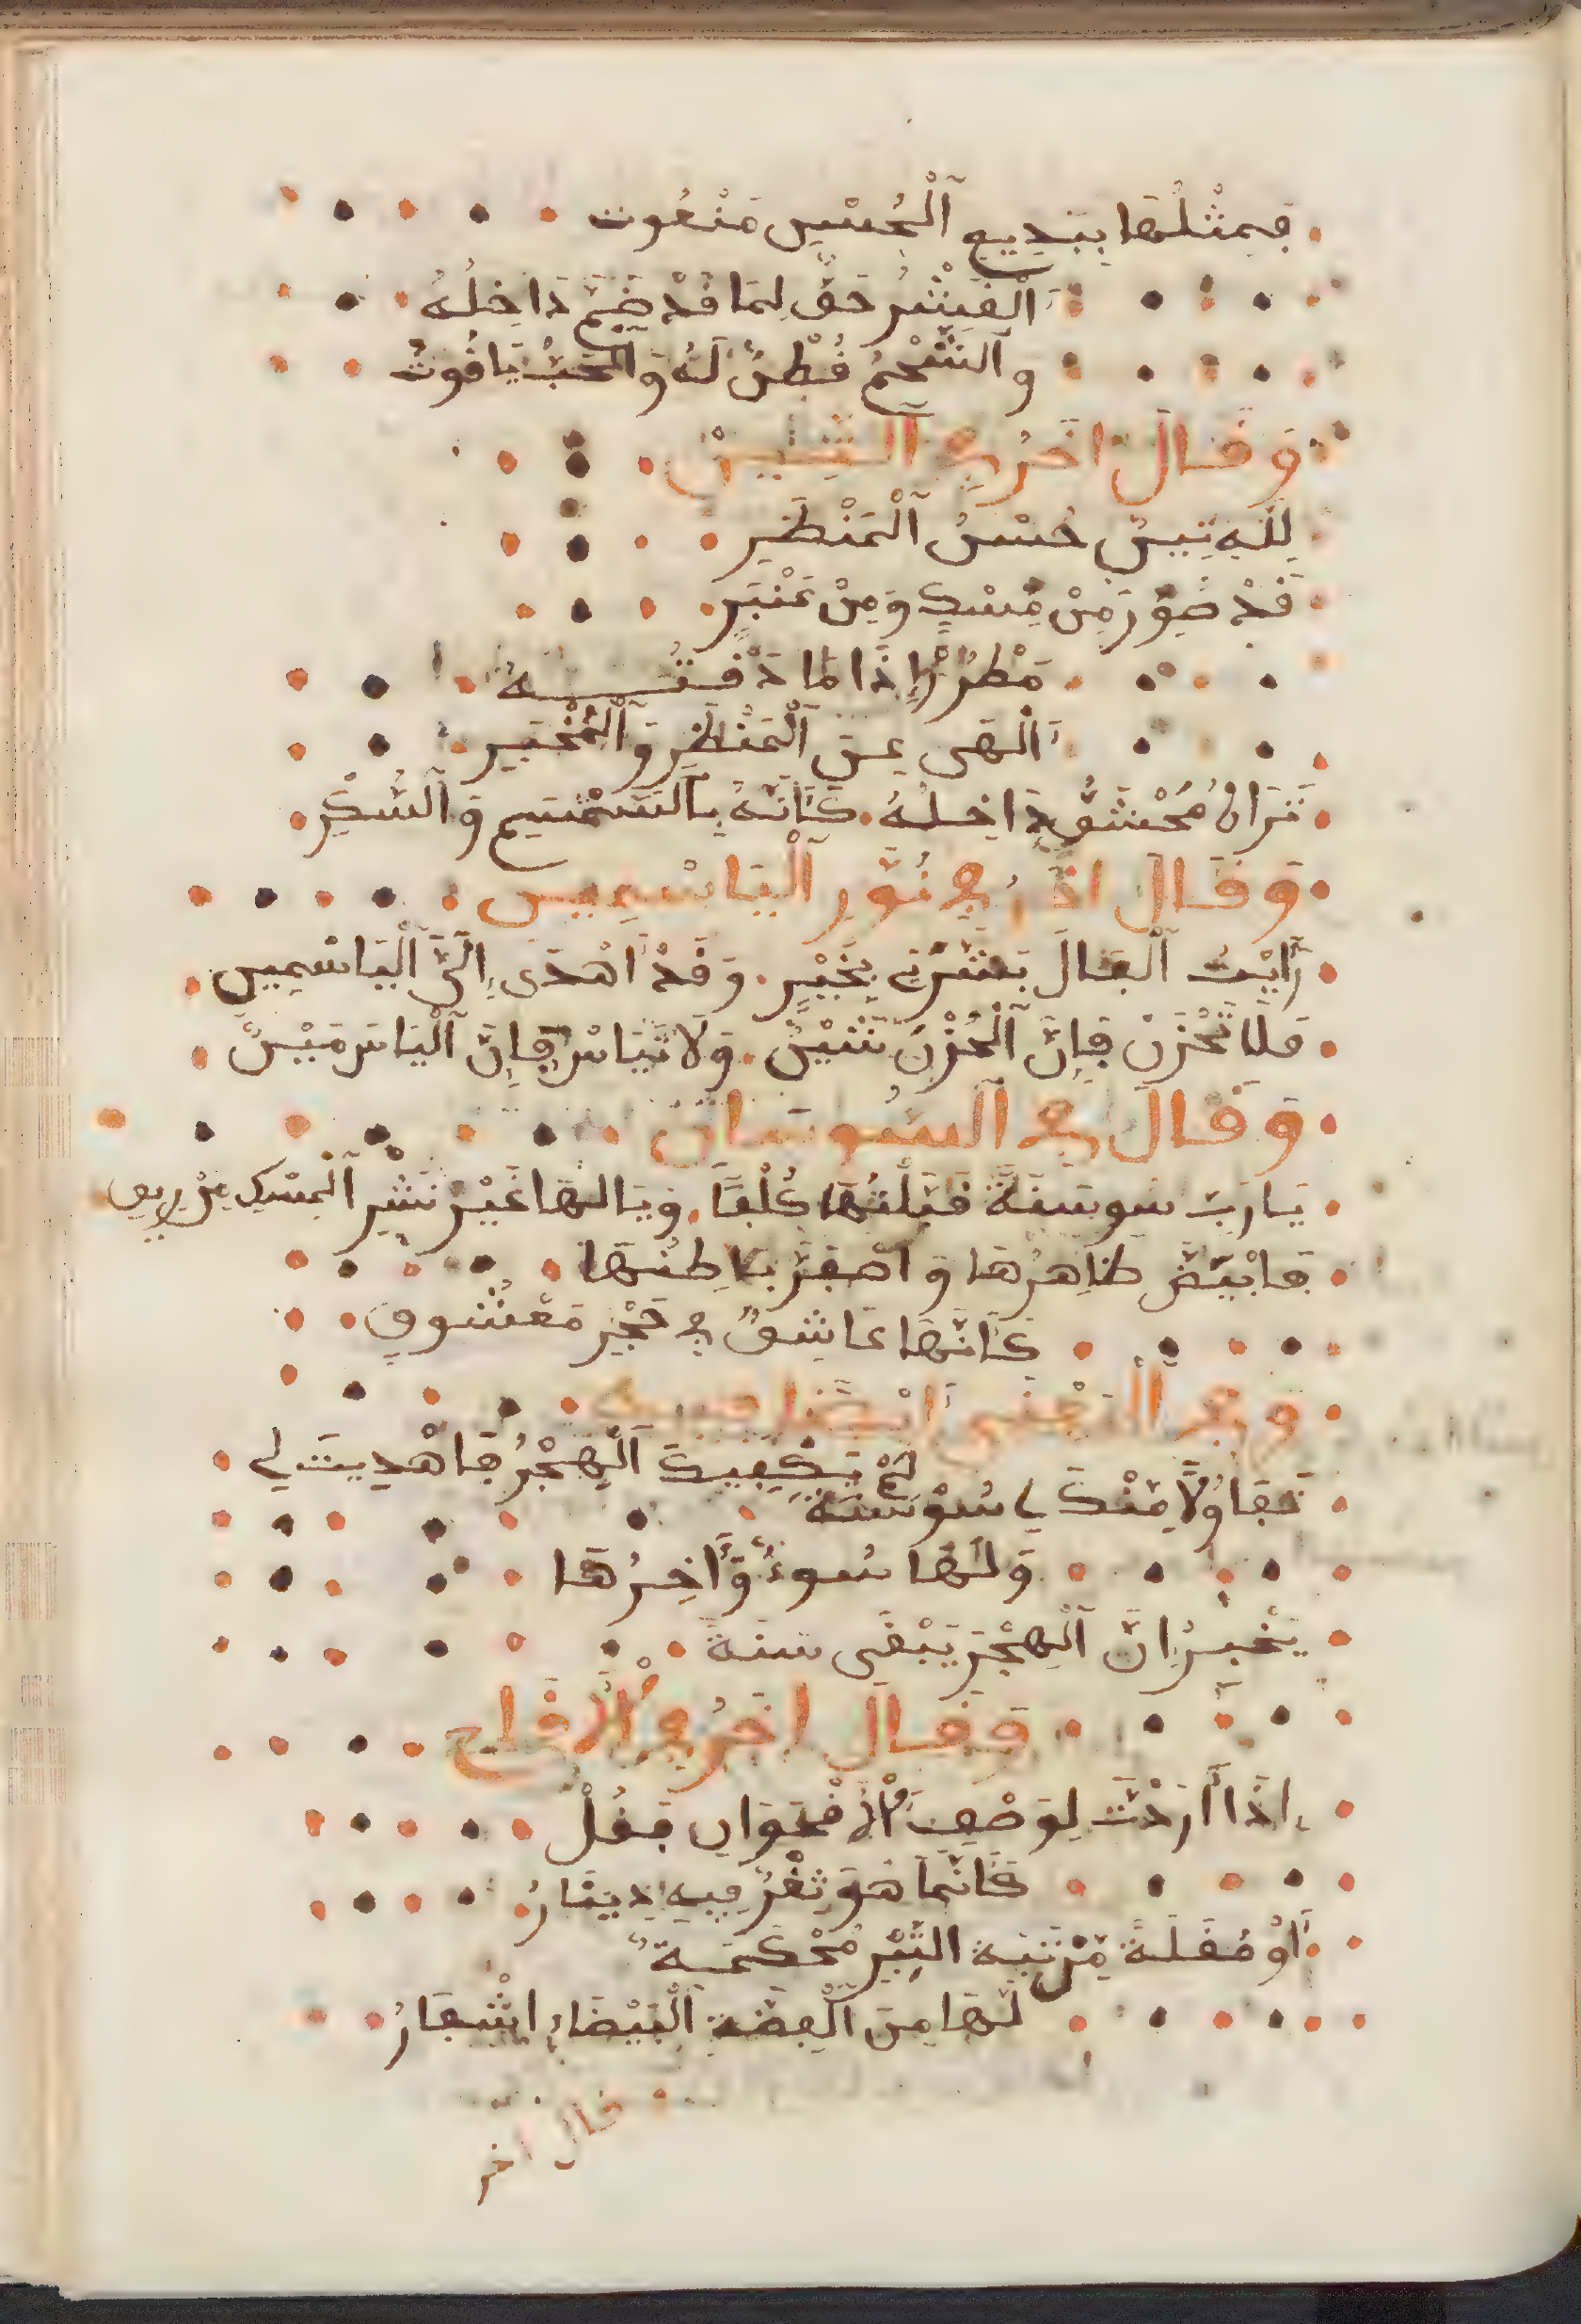 فمثلها ببديع الحسن منعوت
القشر حق لما قد ضم داخله
والشحم قطن له والحب ياقوت
وقال اخر في التين
لله تين حسن المنظر
قد صور من مسك ومن عنبر
اذا ما ذقته
الهى عن المنظر والمخبر
تراه محشو داخله كأنه بالسمسم والسكر
وقال اخر في نور الياسمين
رأيت الفال بشرني بخير وقد اهدى إلي الياسمين
فلا تحزن فإن الحزن شين ولا تيأس فإن اليأس مين
وقال في السوسان
يا رب سوسنة قبلتها كلفا ويا لها غير نشر المسك من ريق
فابيض ظاهرها واصفر باطنها
كأنها عاشق في حجر معشوق
وفي المعنى ايضا
لم يكفيك الهجر فاهديت لي
تفاولا منك يا سوسنة
اولها سوء وآخرها
يخبر ان الهجر يبقى سنة
وقال اخر في الأقاح
إذا أردت لوصف الأقحوان فقل
كأنما هو ثغر فيه دينار
أو مقلة من التبر محكمة
لها من الفضة البيضاء اشفار
قال اخر